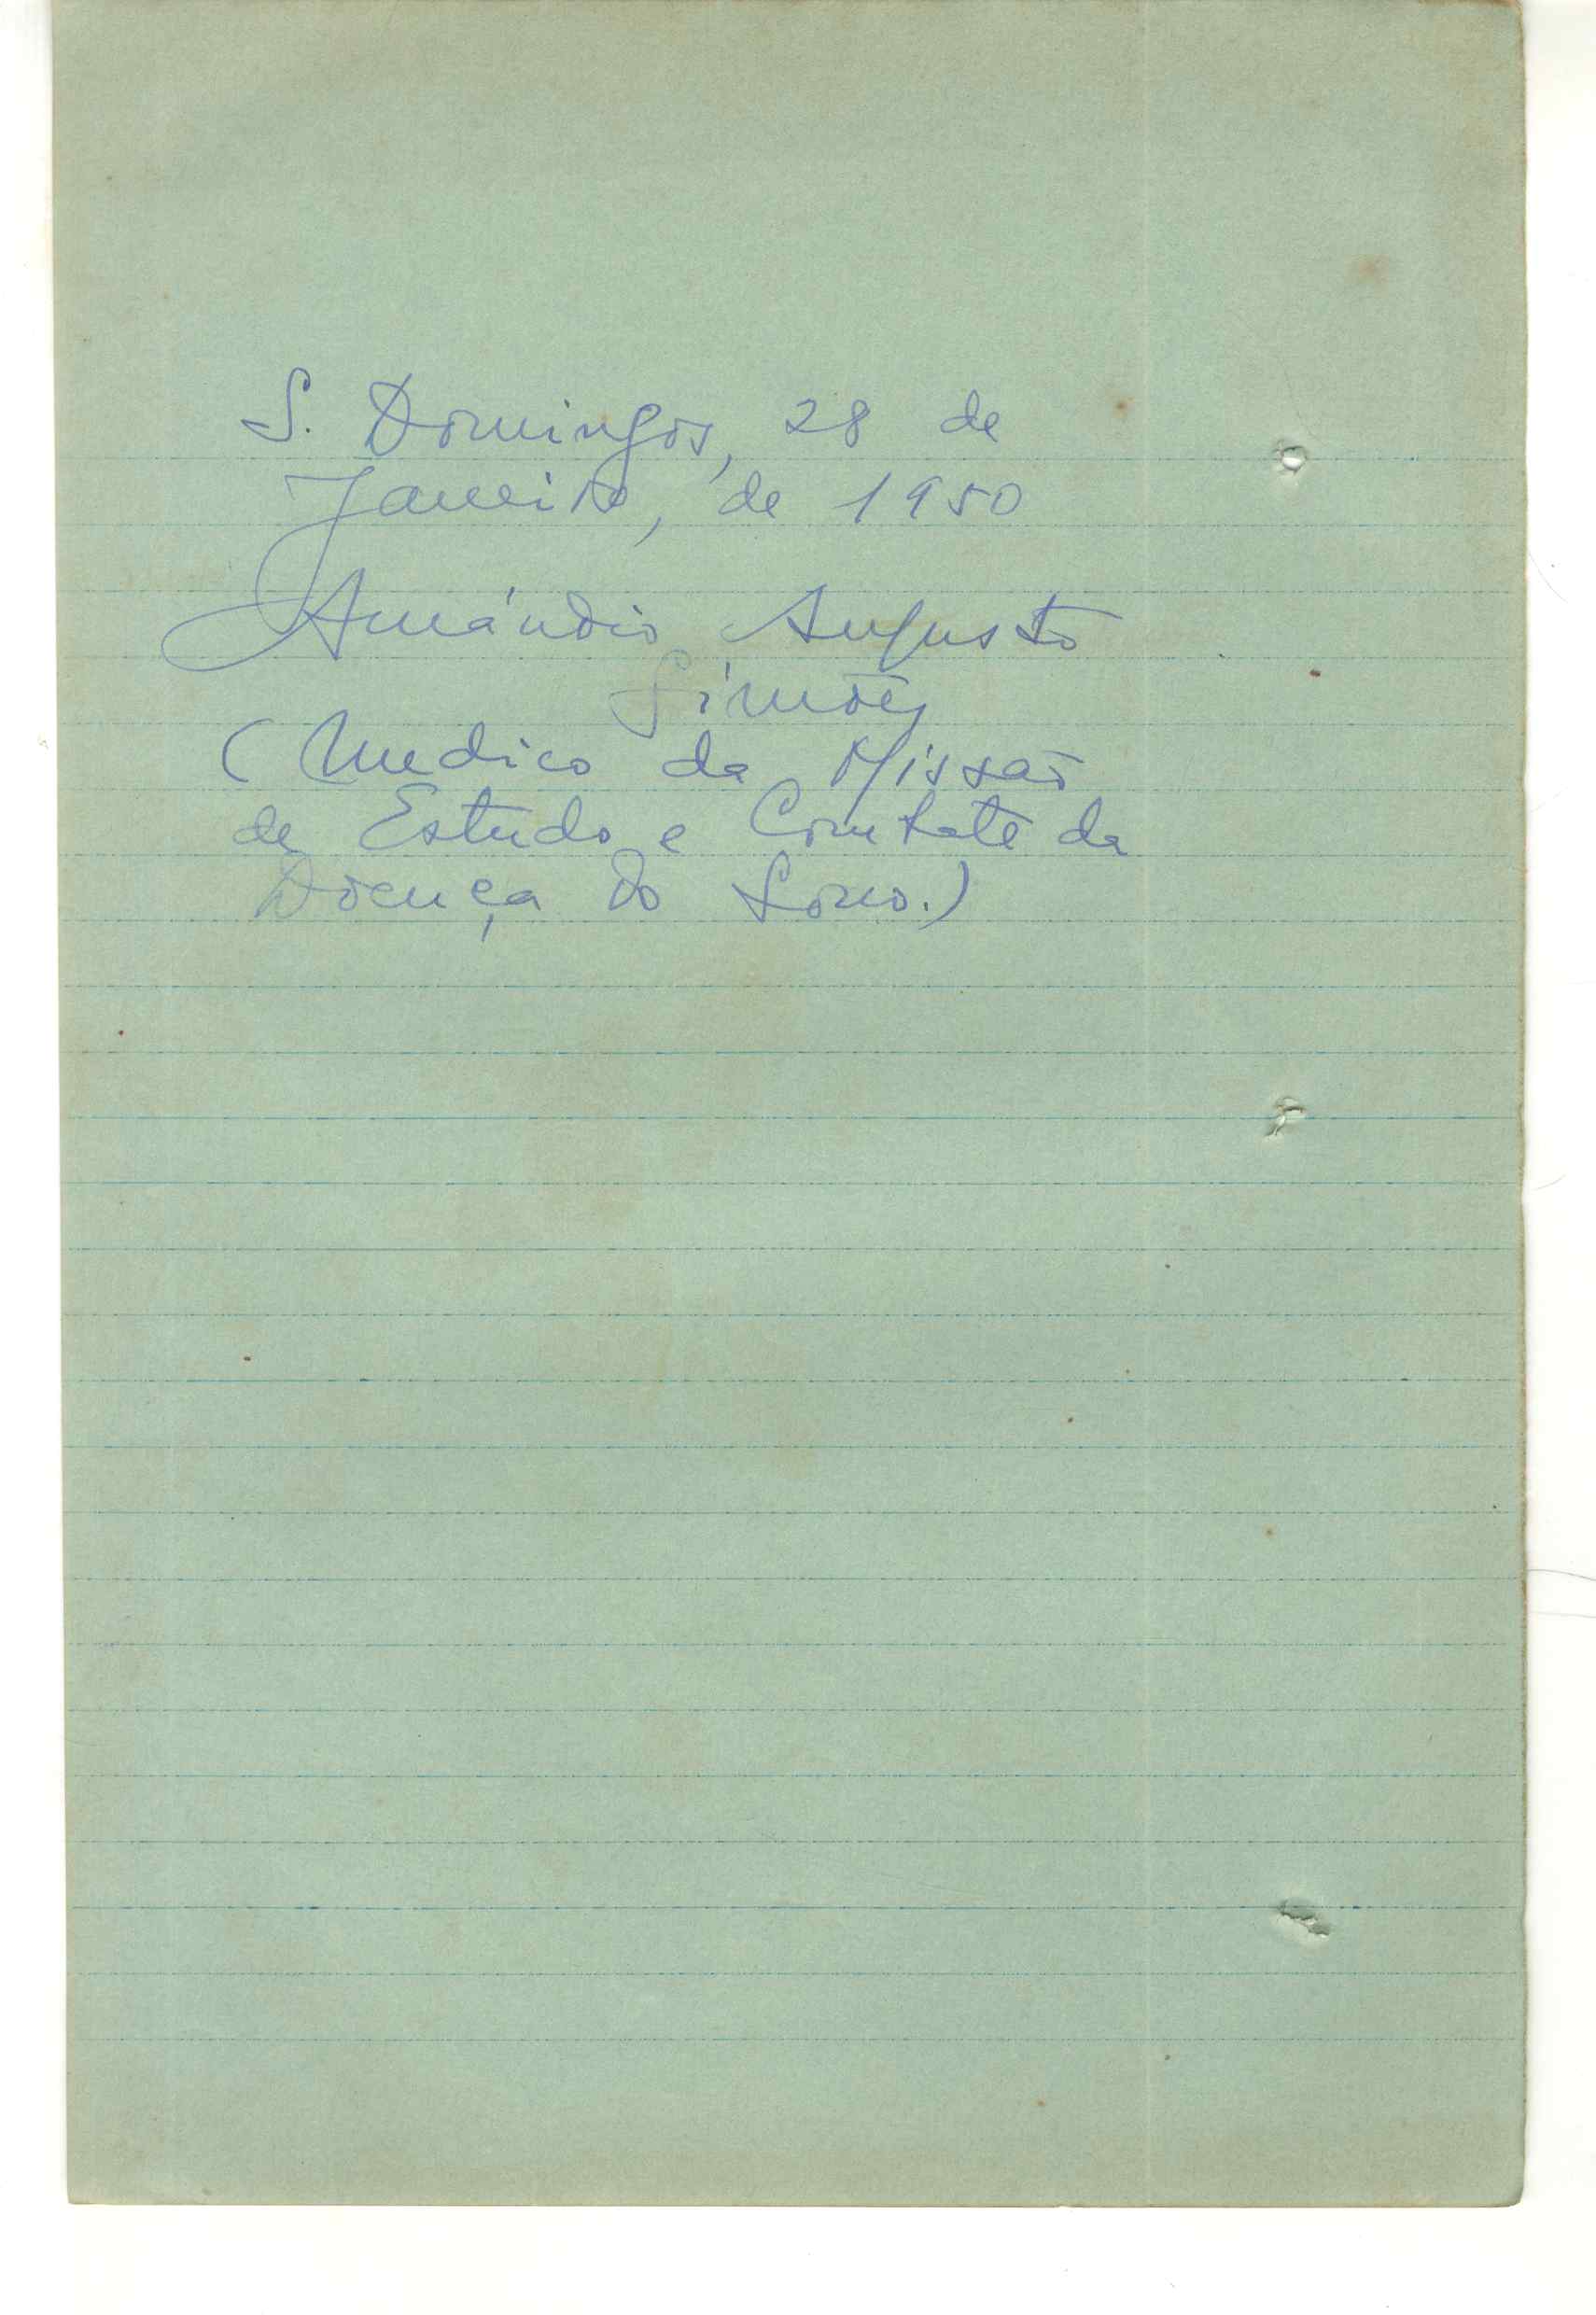 S. Domingos, 28 de
Janeiro, de 1950
Amândio Augusto
Simões
(Medico da Missão
de Estudo e Combate da
Doença do Sono.)